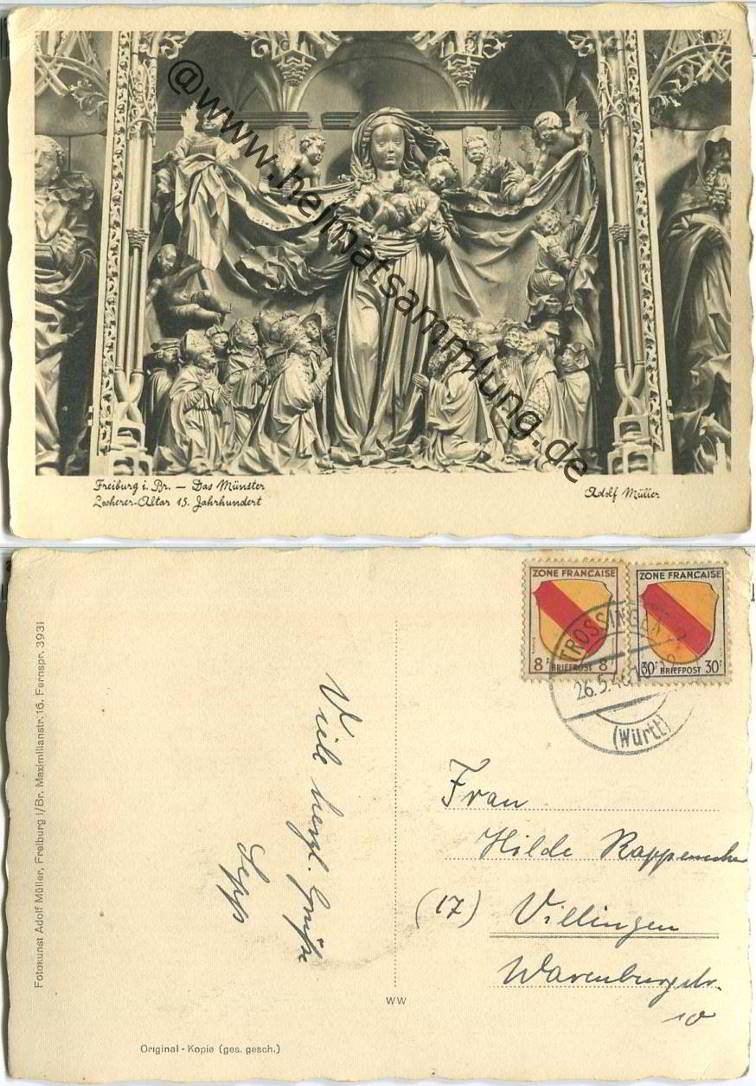 @www.heimatsammlung.de
Freiburg i. Br. — Das Münster
Locherer-Altar 15. Jahrhundert
Adolf Müller
Fotokunst Adolf Müller, Freiburg i/Br. Maximilianstr. 16. Fernspr. 3931
ZONE FRANÇAISE
8 BRIEFPOST 8
ZONE FRANÇAISE
30 BRIEFPOST 30
TROSSINGEN
26.5.
(Württ)
Viele herzl. Grüße
Sepp
Frau
Hilde
(17) Villingen
Warenburgstr.
10
WW
Original - Kopie (ges. gesch.)